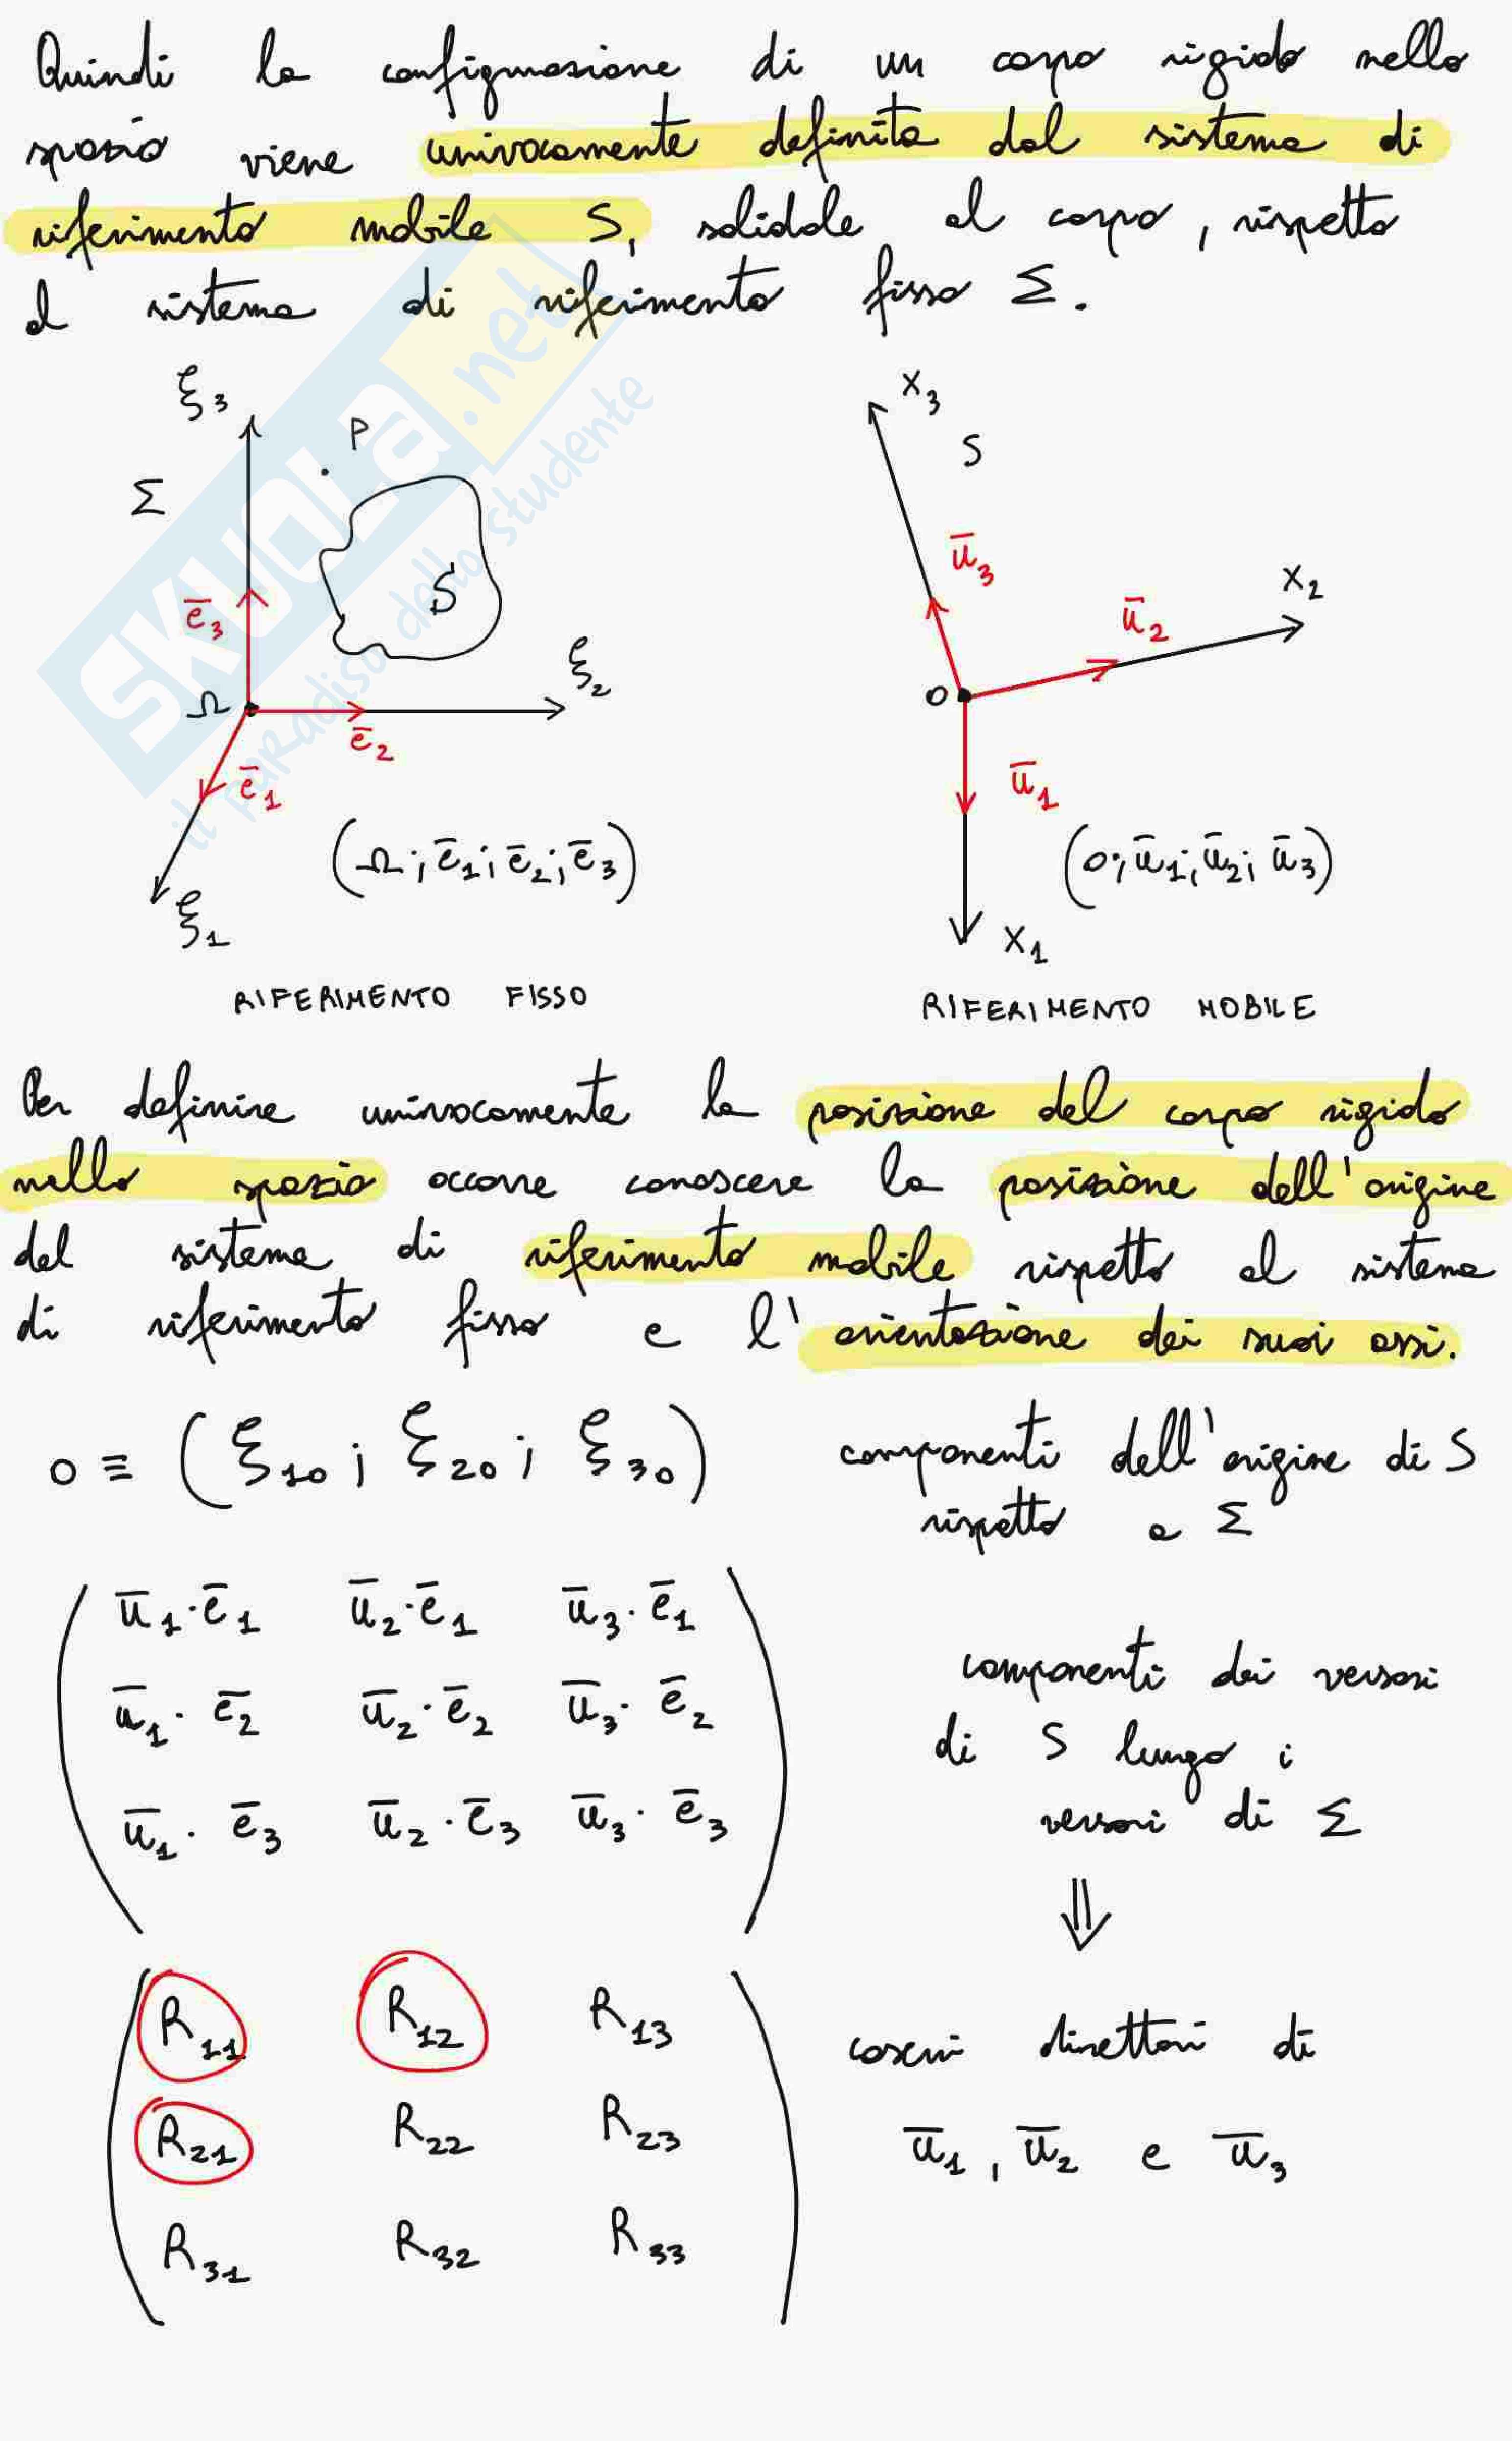 Quindi la configurazione di un corpo rigido nello
spazio viene univocamente definita dal sistema di
riferimento mobile S, solidale al corpo, rispetto
al sistema di riferimento fisso Σ.
ξ3
Σ
P
S
ē3
Ω
ξ2
ē2
ē1
(Ω; ē1; ē2; ē3)
ξ1
RIFERIMENTO FISSO
X3
S
ū3
X2
ū2
O
ū1
(O; ū1; ū2; ū3)
X1
RIFERIMENTO MOBILE
SKUOLA.net
il paradiso dello studente
Per definire univocamente la posizione del corpo rigido
nello spazio occorre conoscere la posizione dell'origine
del sistema di riferimento mobile rispetto al sistema
di riferimento fisso e l'orientazione dei suoi assi.
O ≡ (ξ10; ξ20; ξ30) componenti dell'origine di S
rispetto a Σ
ū1·ē1 ū2·ē1 ū3·ē1
ū1·ē2 ū2·ē2 ū3·ē2
ū1·ē3 ū2·ē3 ū3·ē3
componenti dei versori
di S lungo i
versori di Σ
⇓
R11 R12 R13
R21 R22 R23
R31 R32 R33
coseni direttori di
ū1, ū2 e ū3